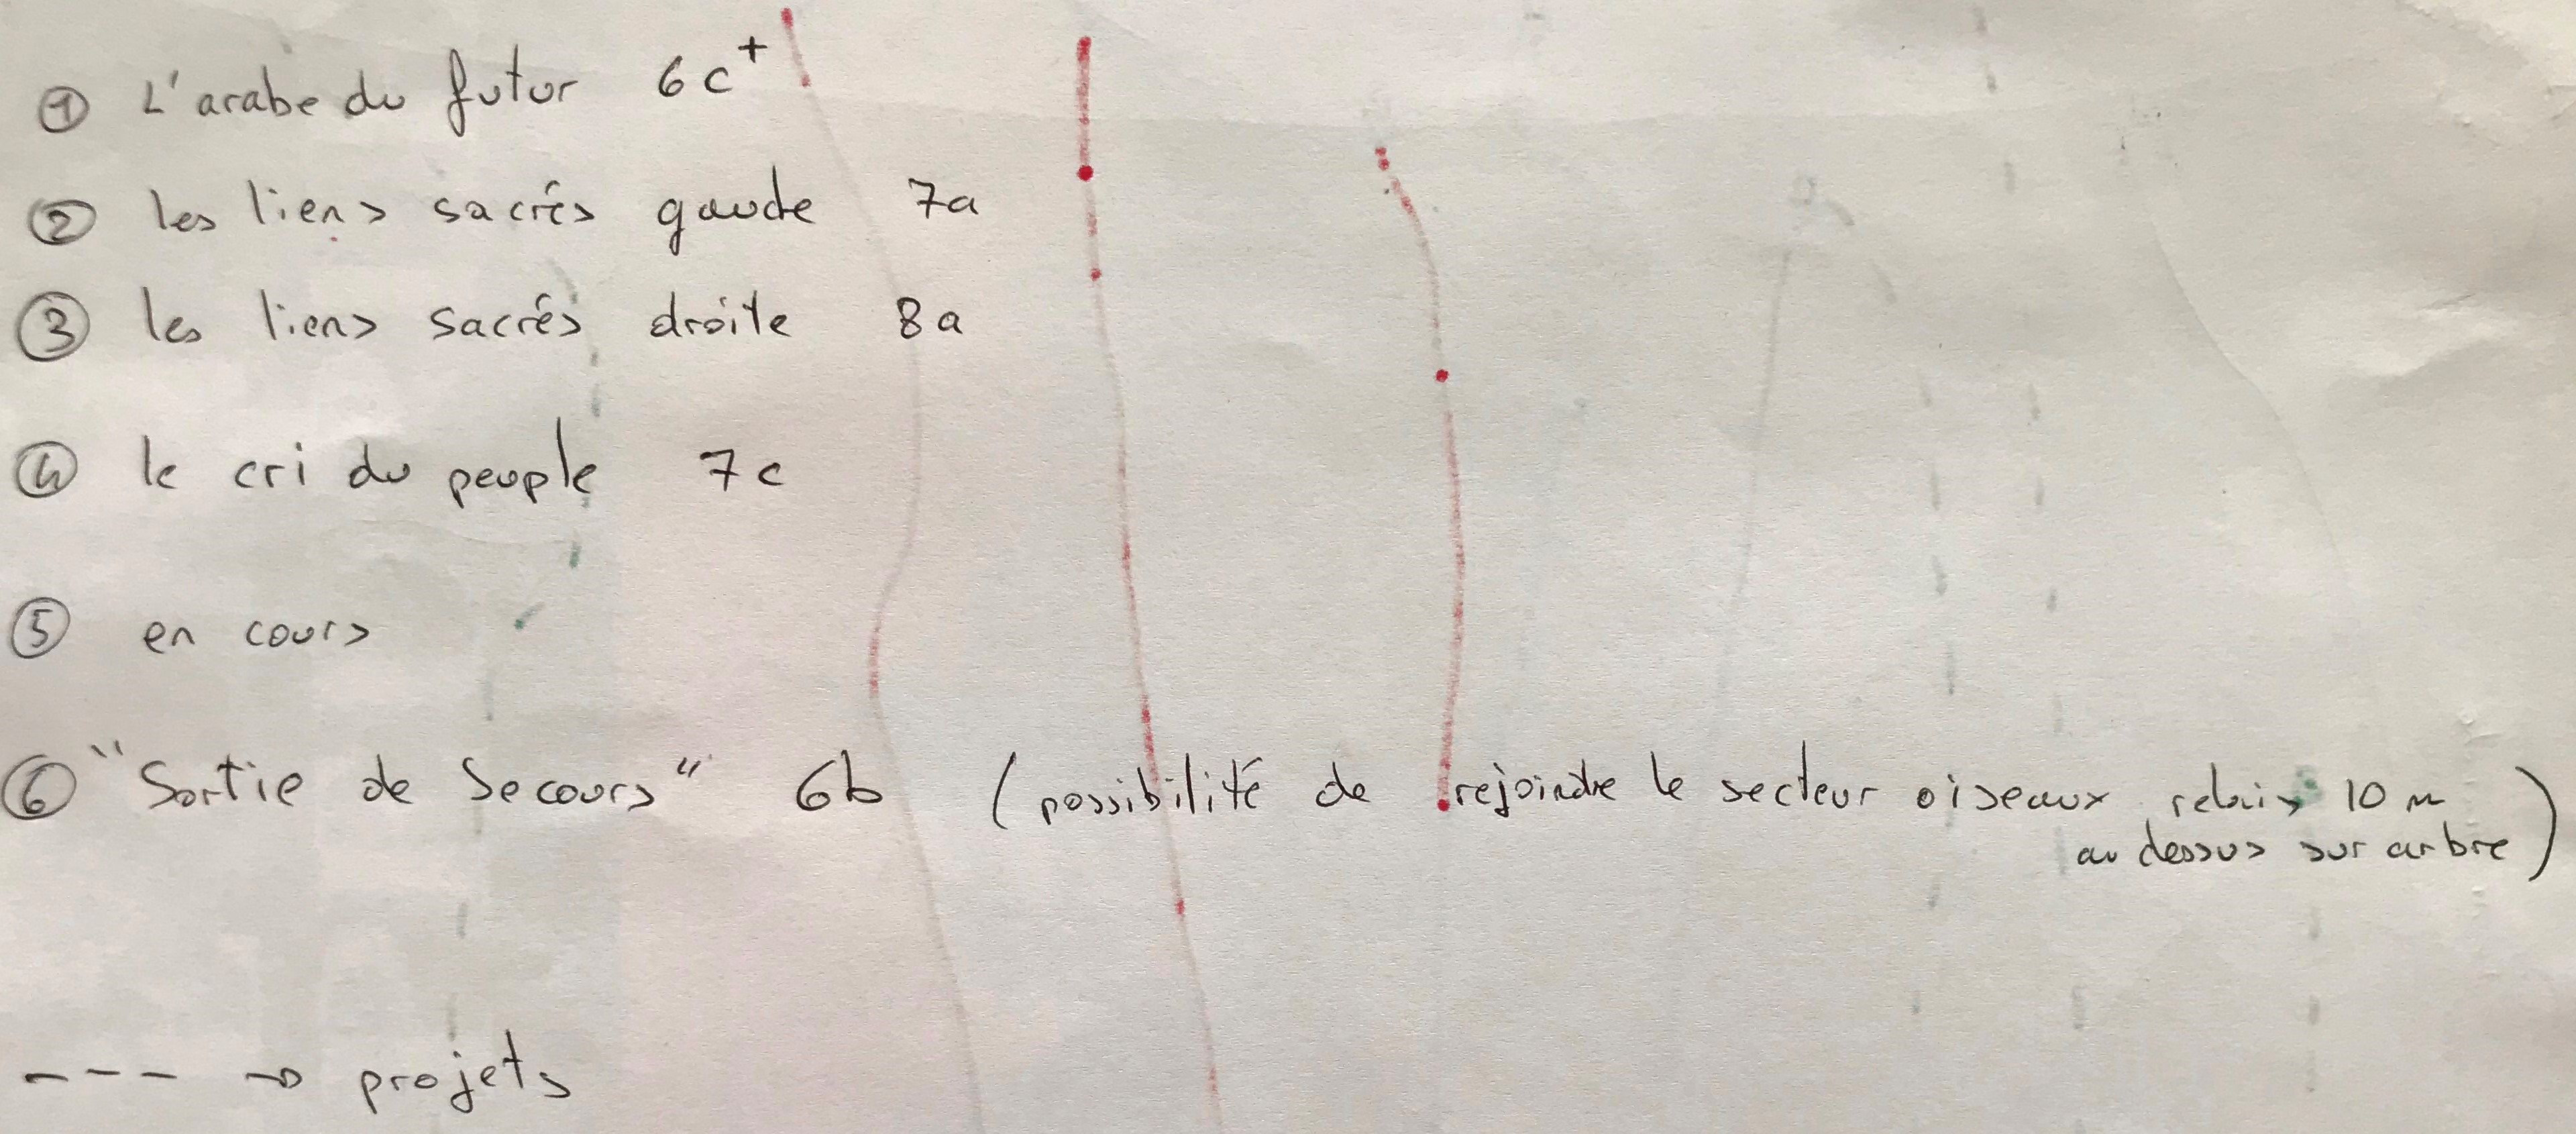 ① L'arabe du futur 6c+
② les liens sacrés gauche 7a
③ les liens sacrés droite 8a
④ le cri du peuple 7c
⑤ en cours
⑥ "Sortie de Secours" 6b (possibilité de rejoindre le secteur oiseaux relais 10 m
au dessus sur arbre)
--- → projets